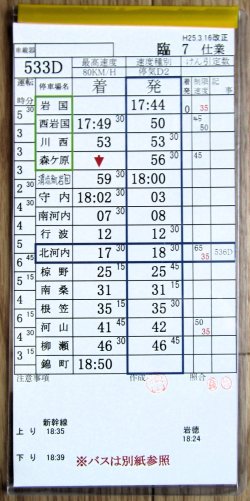 H25.3.16改正
臨 7 仕業
車載器
533D 最高速度 80KM/H 速度種別 停気D2 けん引定数
運転時分 停車場名 着 発 着発 制限速度 記事
岩国 17:44 0 35
5 30 西岩国 17:49 30 50 45 50
3 30 川西 53 53 30
森ケ原 56 45
59 30 18:00
守内 18:02 30 03
南河内 07 08
行波 12 30 12 30
北河内 17 30 18 30 65 35 536D
6 45 椋野 25 15 25 45
南桑 31 31 30
根笠 35 15 35 45
河山 41 42 45 50 35
柳瀬 46 30 46 45
錦町 18:50
注意事項 作成 照合
新幹線 岩徳
上り 18:35 18:24
下り 18:39
※バスは別紙参照